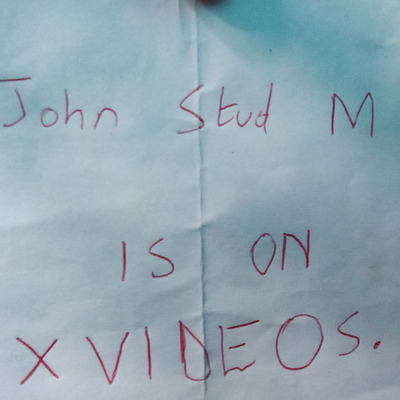 John Stud M
IS ON
X VIDEOS.